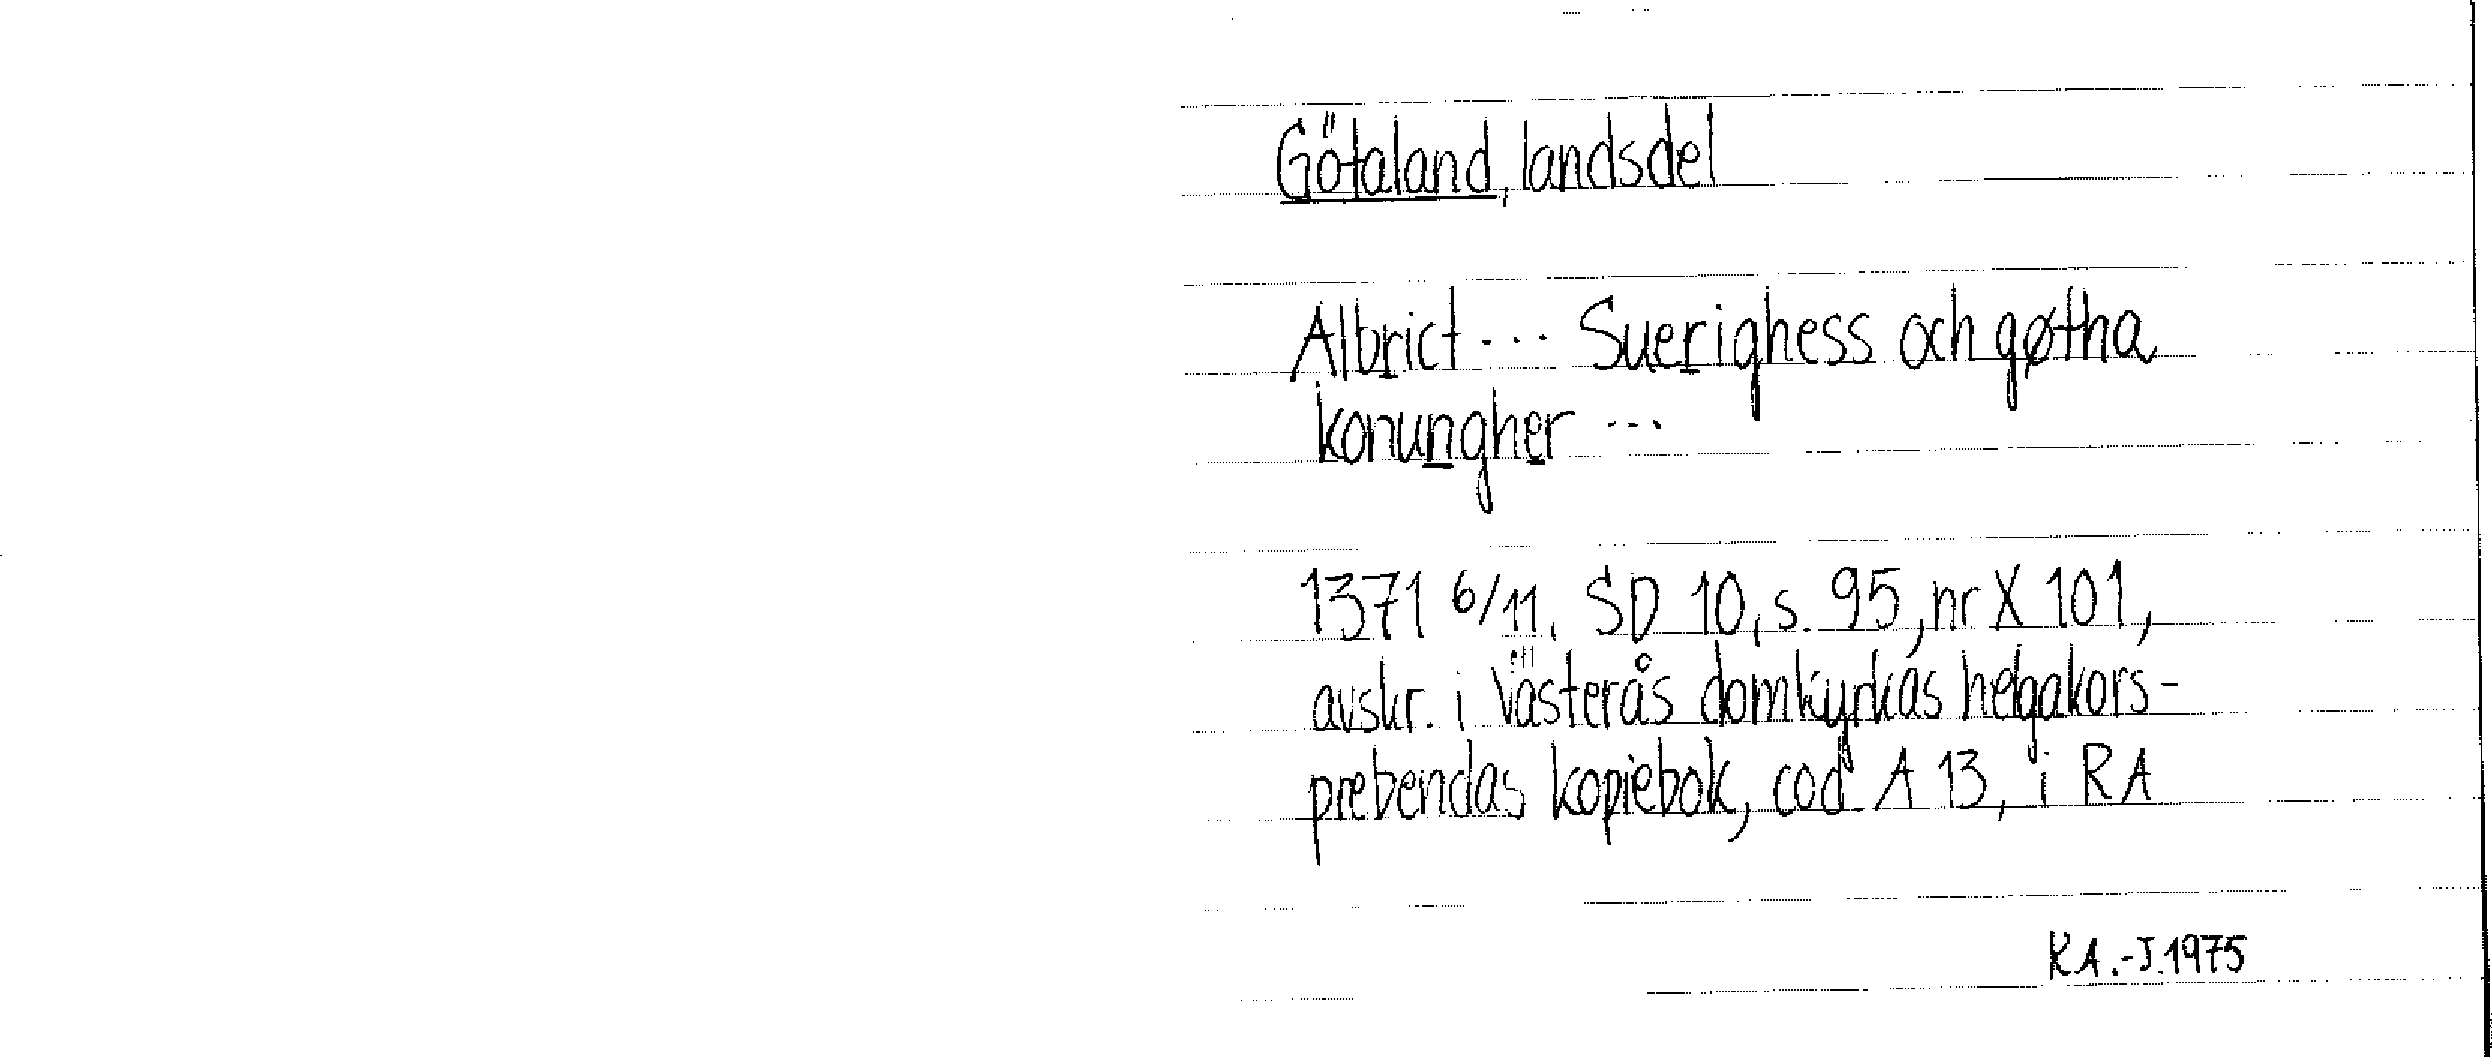 Götaland, landsdel
Albrict ... Suerighess och gøtha
konungher ...
1371 6/11. SD 10, s. 95, nr X 101,
avskr. i Västerås domkyrkas helgakors-
prebendas kopiebok, cod A 13, i RA
K.A.-J. 1975